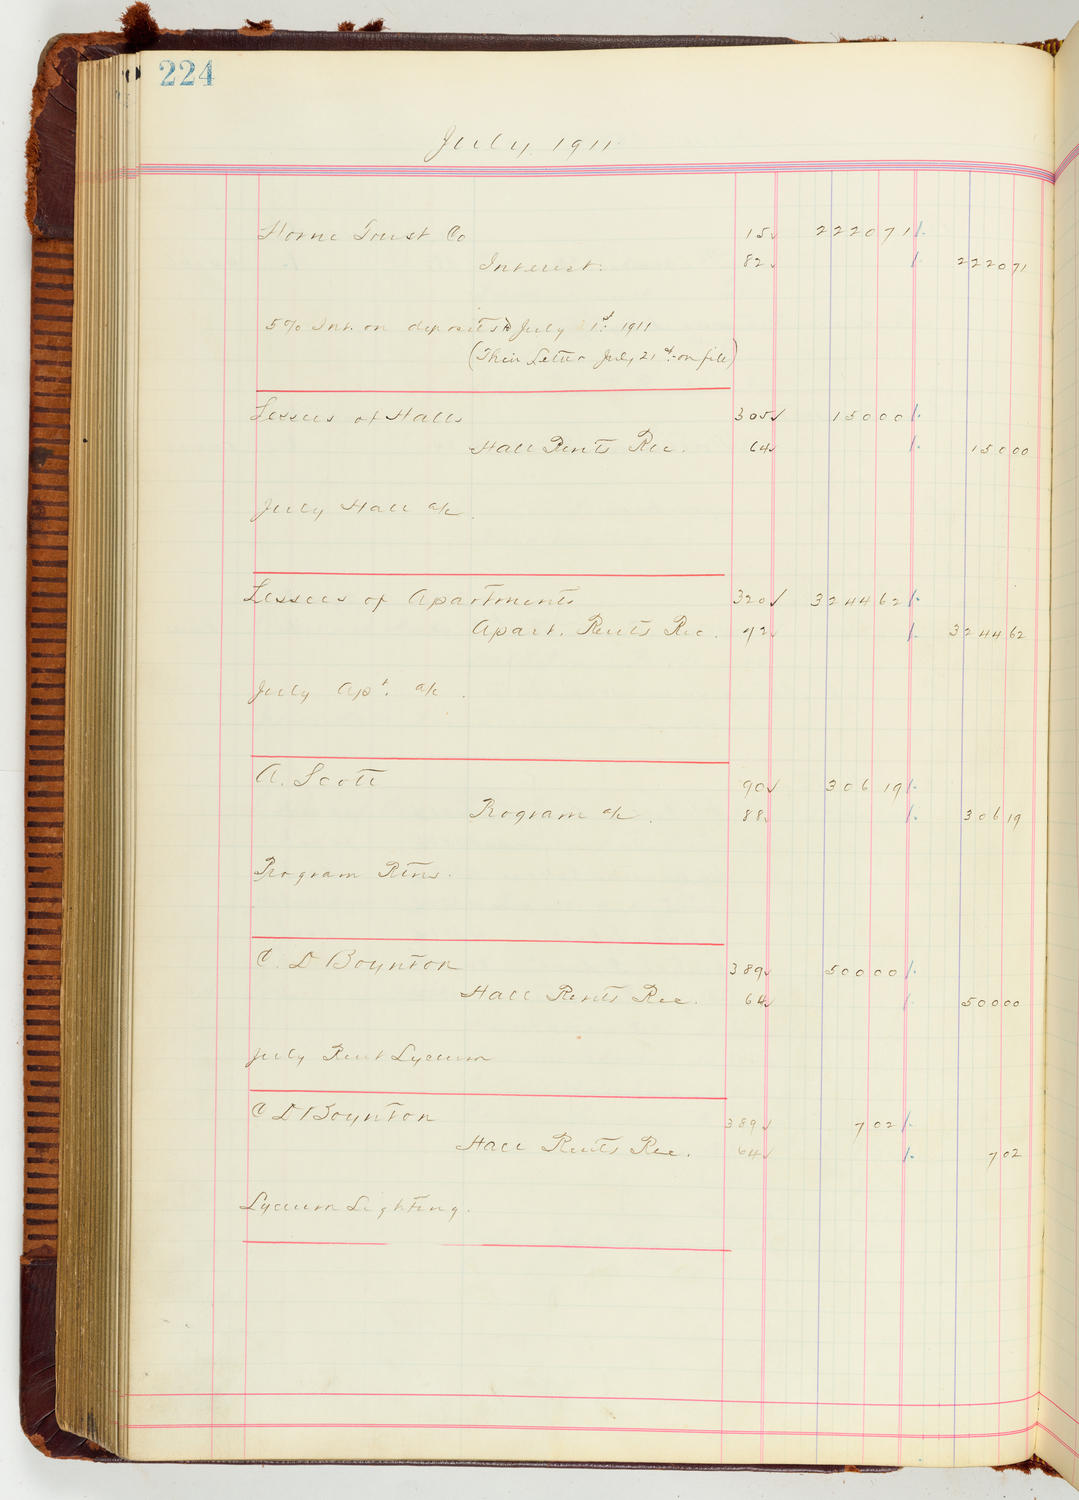 224
July 1911
Home Trust Co 15 2220 71
Interest. 82 2220 71
5% Int. on deposits to July 1st 1911
(Their Letter July 21st on file)
Lessees of Halls 305 150 00
Hall Rents Rec. 64 150 00
July Hall a/c.
Lessees of Apartments 320 3244 62
Apart. Rents Rec. 92 3244 62
July Apt. a/c.
A. Scott 90 306 19
Program a/c. 88 306 19
Program Rtns.
C. D Boynton 389 500 00
Hall Rents Rec. 64 500 00
July Rent Lyceum
C D Boynton 389 7 02
Hall Rents Rec. 64 7 02
Lyceum Lighting.